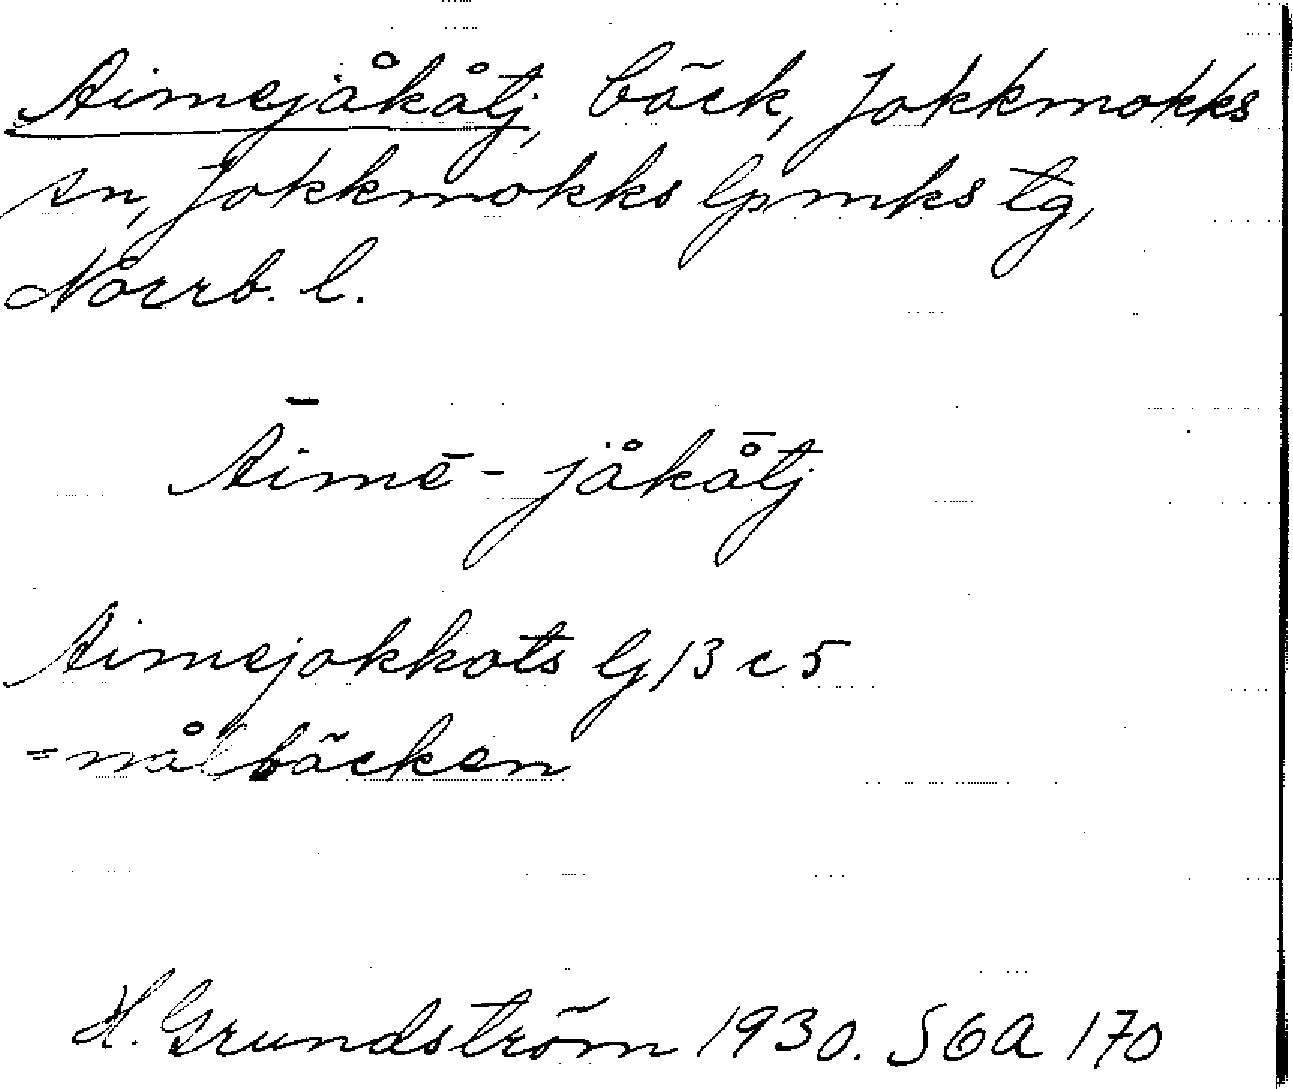 Aimejåkåtj, bäck, Jokkmokks
sn, Jokkmokks lpmks tg,
Norrb. l.
Āimē-jåkå̄tj
Aimejokkots G 13 c 5
= nålbäcken
H. Grundström 1930. SGA 170